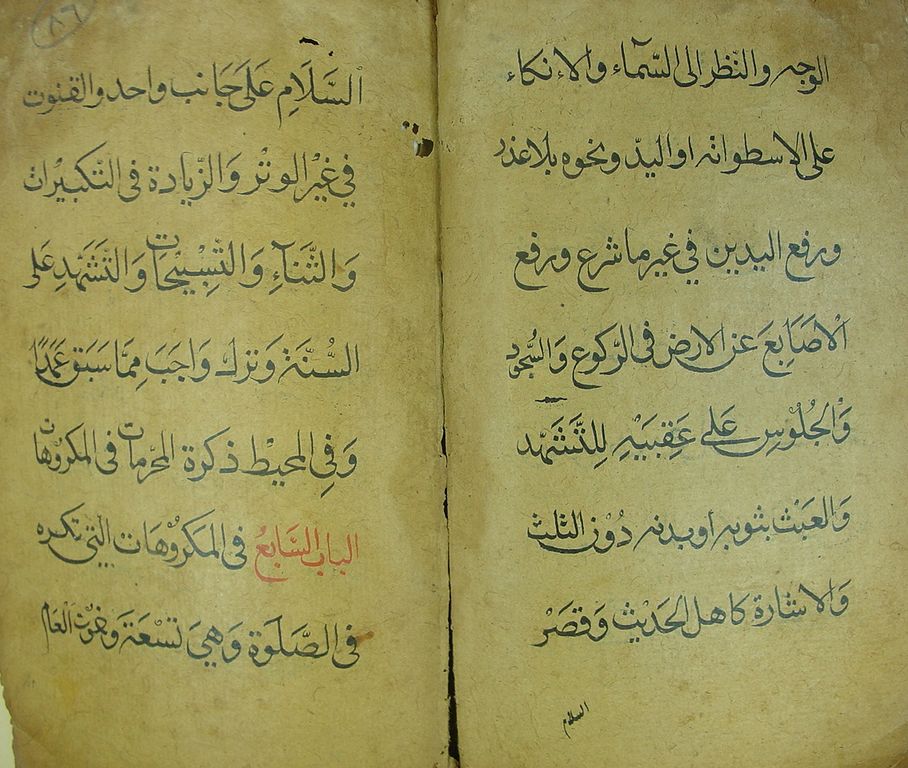 الوجه والنظر الى السّمآء والاتكاء
على الاسطوانه او اليدّ ونحوه بلا عذر
ورفع اليدين في غير ما شرع ورفع
الاَصَابِعَ عَن الارض فى الرّكوع وَالسُّجود
وَالجُلُوْسِ عَلى عَقِبَيْهِ لِلتَّشَهّد
وَالعبَث بثوبه اوبدنه دُوْن الثلث
وَالاشارة كاهل الحَديْث وَقصَرْ
السلام
٨٦
السَّلَامِ عَلَى جَانب واحد والقنوت
في غَيْر الوتْر وَالزّيادة فى التكبيرات
وَالثَّنَآءِ وَالتَّسِبْيْحَات وَالتَّشَهّدِ عَلى
السُّنَّة وَترك وَاجَبَ مِمَّا سَبَق عَمَدًا
وَفِي المحيْط ذكرة المحرّمات فى المكروُهات
الباب السَّابعُ فى المَكروُهات الّتي تكره
فى الصَّلوة وَهيَ تسْعَة وَخمْوُن العَام